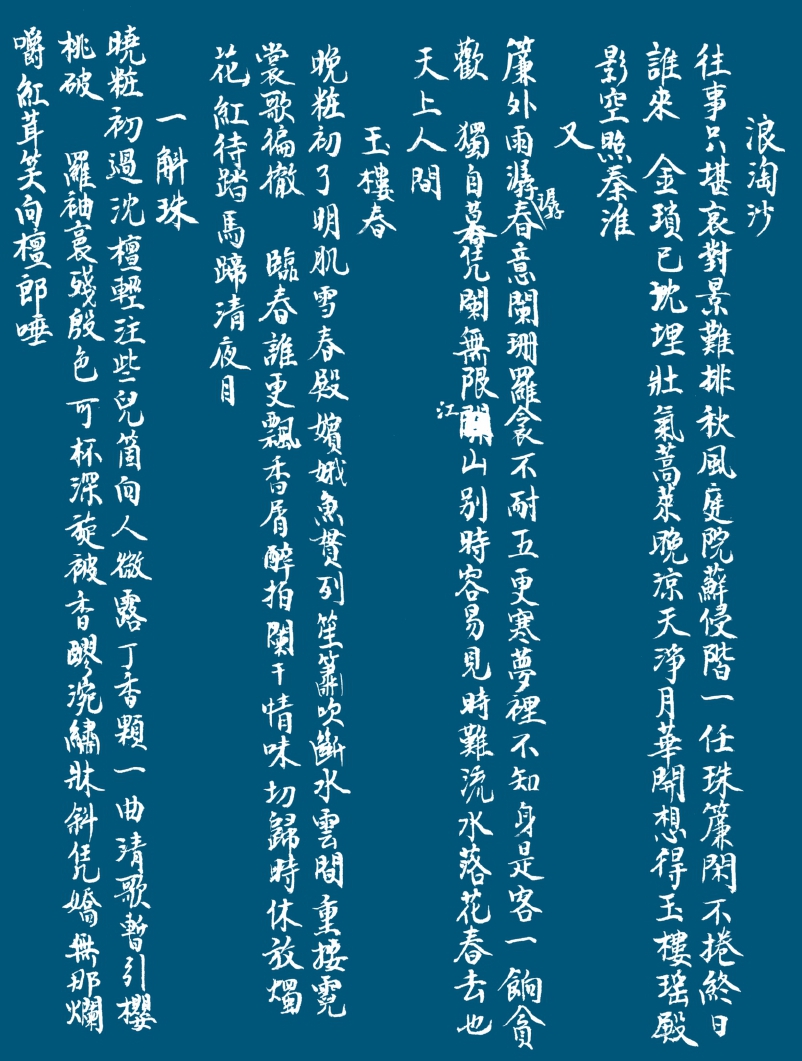 浪淘沙
往事只堪哀對景難排秋風庭院蘚侵階一任珠簾閑不捲終日
誰來　金瑣已沈埋壯氣蒿萊晚涼天淨月華開想得玉樓瑤殿
影空照秦淮
又
簾外雨潺潺春意闌珊羅衾不耐五更寒夢裡不知身是客一餉貪
歡　獨自暮凭闌無限江山別時容易見時難流水落花春去也
天上人間
玉樓春
晚粧初了明肌雪春殿嬪娥魚貫列笙簫吹斷水雲間重按霓
裳歌徧徹　臨春誰更飄香屑醉拍闌干情味切歸時休放燭
花紅待踏馬蹄清夜月
一斛珠
曉粧初過沈檀輕注些兒箇向人微露丁香顆一曲清歌暫引櫻
桃破　羅袖裛殘殷色可杯深旋被香醪涴繡牀斜凭嬌無那爛
嚼紅茸笑向檀郎唾